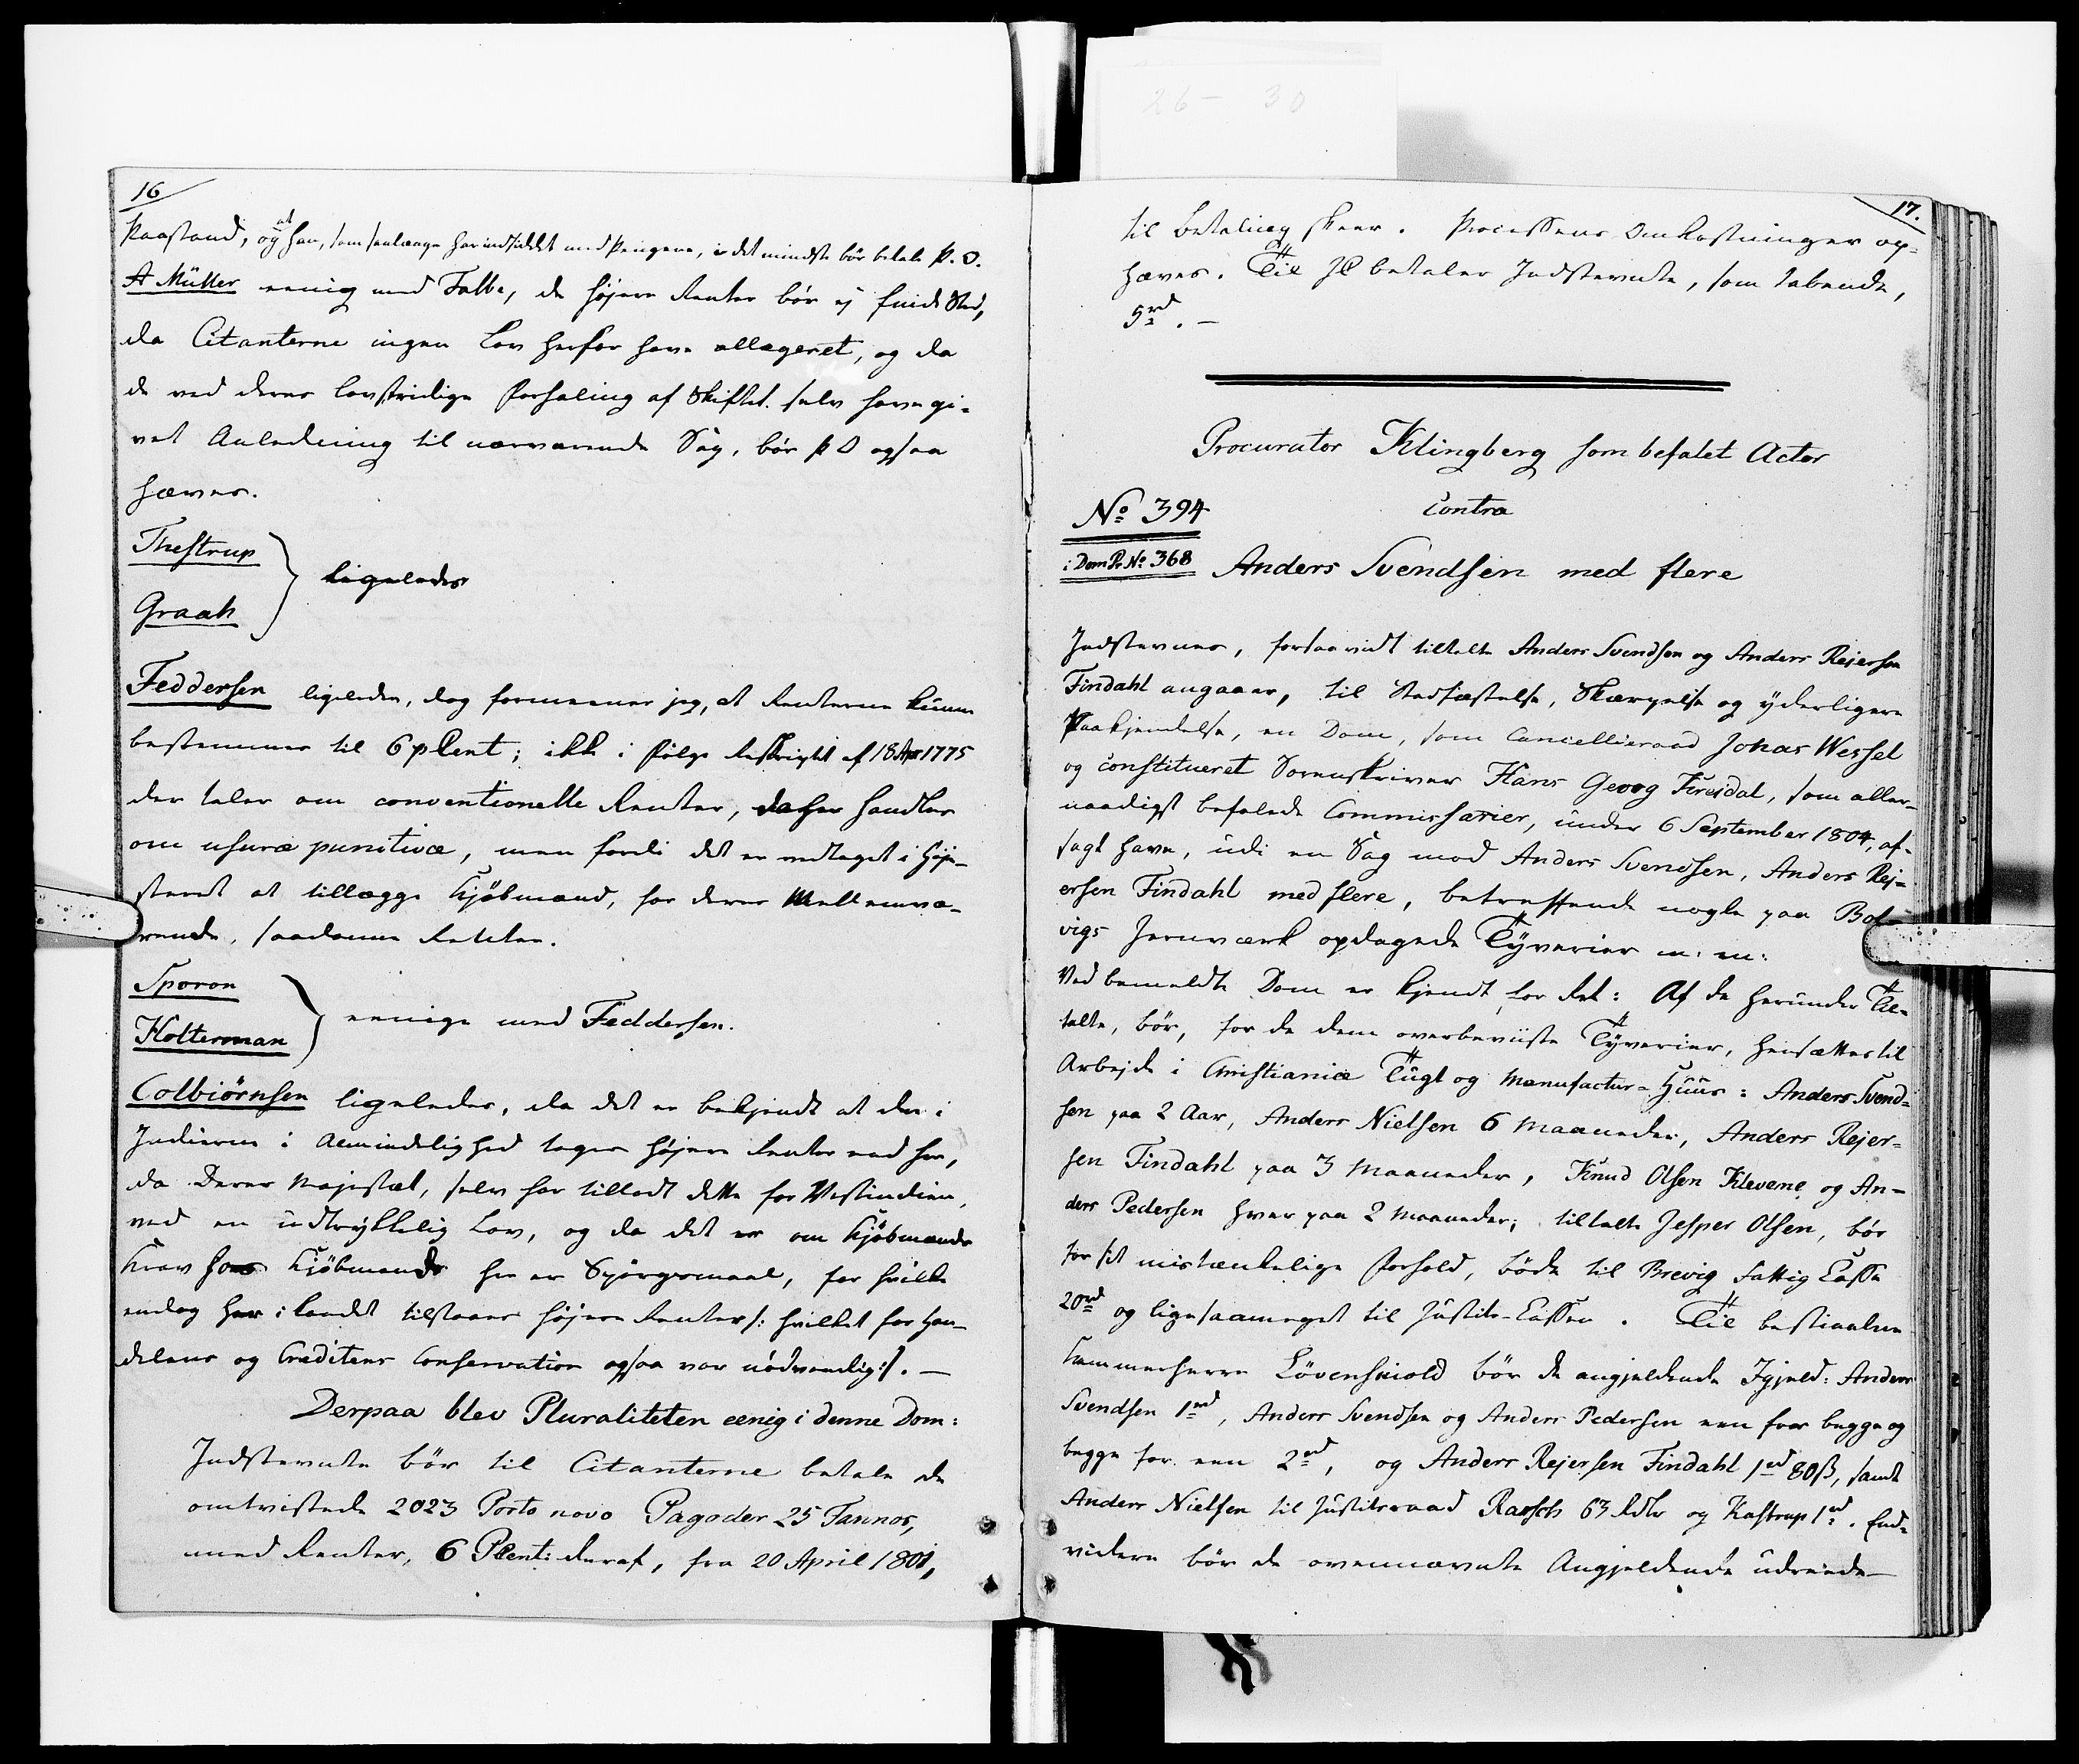 16
Paastand, og at han, som saalænge har indsiddet med Pengene, i det mindste bør betale P. O.
A Müller eenig med Falbe, de højere Renter bør ej finde Sted,
da Citanterne ingen Lov herfor have allegeret, og da
de ved deres lovstridige Forhaling af Skiftet selv have gi-
vet Anledning til nærværende Sag, bør P O ogsaa
hæves.
Thestrup
Graah
} ligeledes
Feddersen ligeledes, dog formeener jeg, at Renterne kuns
bestemmes til 6 pCent; ikke i følge Rescriptet af 18 Apr 1775
der taler om conventionelle Renter, da her handles
om usuræ punitivæ, men fordi det er vedtaget i Høje-
steret at tillægge Kjøbmænd, for deres Mellemvæ-
rende, saadanne Renter.
Sporon
Kolterman
} eenige med Feddersen.
Colbiørnsen ligeledes, da det er bekjendt at der i
Indierne i Almindelighed tages højere Renter end her,
da Deres Majestæt, selv har tilladt dette for Vestindien,
ved en udtrykkelig Lov, og da det er om Kjøbmænds
Krav hos Kjøbmænd her er Spørgsmaal, for hvilke
endog her i Landet tilstaaes højere Renter /: hvilket for Han-
delens og Creditens Conservation ogsaa var nødvendig :/. —
Derpaa blev Pluraliteten eenig i denne Dom:
Indstevnte bør til Citanterne betale de
omtvistede 2023 Porto novo Pagoder 25 Fannos,
med Renter, 6 PCent: deraf, fra 20 April 1801,
17.
til Betaling skeer. Processens Omkostninger op-
hæves. Til JC betaler Indstevnte, som tabende,
5 rd. —
Procurator Klingberg som befalet Actor
contra
No 394
i Dom Pr No 368
Anders Svendsen med flere
Indstevnes, forsaavidt tiltalte Anders Svendsen og Anders Rejersen
Findahl angaaer, til Stadfæstelse, Skærpelse og yderligere
Paakjendelse, en Dom, som Cancellieraad Johas Wessel
og constitueret Sorenskriver Hans Georg Fircidal, som aller-
naadigst befalede Commissarier, under 6 September 1804, af-
sagt have, udi en Sag mod Anders Svendsen, Anders Rej-
ersen Findahl med flere, betreffende nogle paa Bol-
vigs Jernværk opdagede Tyverier m: m:
Ved bemeldte Dom er kjendt for Ret: Af de herunder Til-
talte, bør, for de dem overbeviiste Tyverier, hensættes til
Arbejde i Christianiæ Tugt og Manufactur-Huus: Anders Svend-
sen paa 2 Aar, Anders Nielsen 6 Maaneder, Anders Rejer-
sen Findahl paa 3 Maaneder, Knud Olsen Klevene og An-
ders Pedersen hver paa 2 Maaneder; tiltalte Jesper Olsen, bør
for sit mistænkelige Forhold, bøde til Brevig Fattig Casse
20 rd og ligesaameget til Justits-Cassen. Til bestiaalne
Cammerherre Løvenskiold bør de angjeldende Igjeld: Anders
Svendsen 1 rd, Anders Svendsen og Anders Pedersen een for begge og
begge for een 2 rd, og Anders Rejersen Findahl 1 rd 80 ß, samt
Anders Nielsen til Justitsraad Rasch 63 Rdlr og Kastrup 1 rd. End-
videre bør de ovennævnte Angjeldende udreede